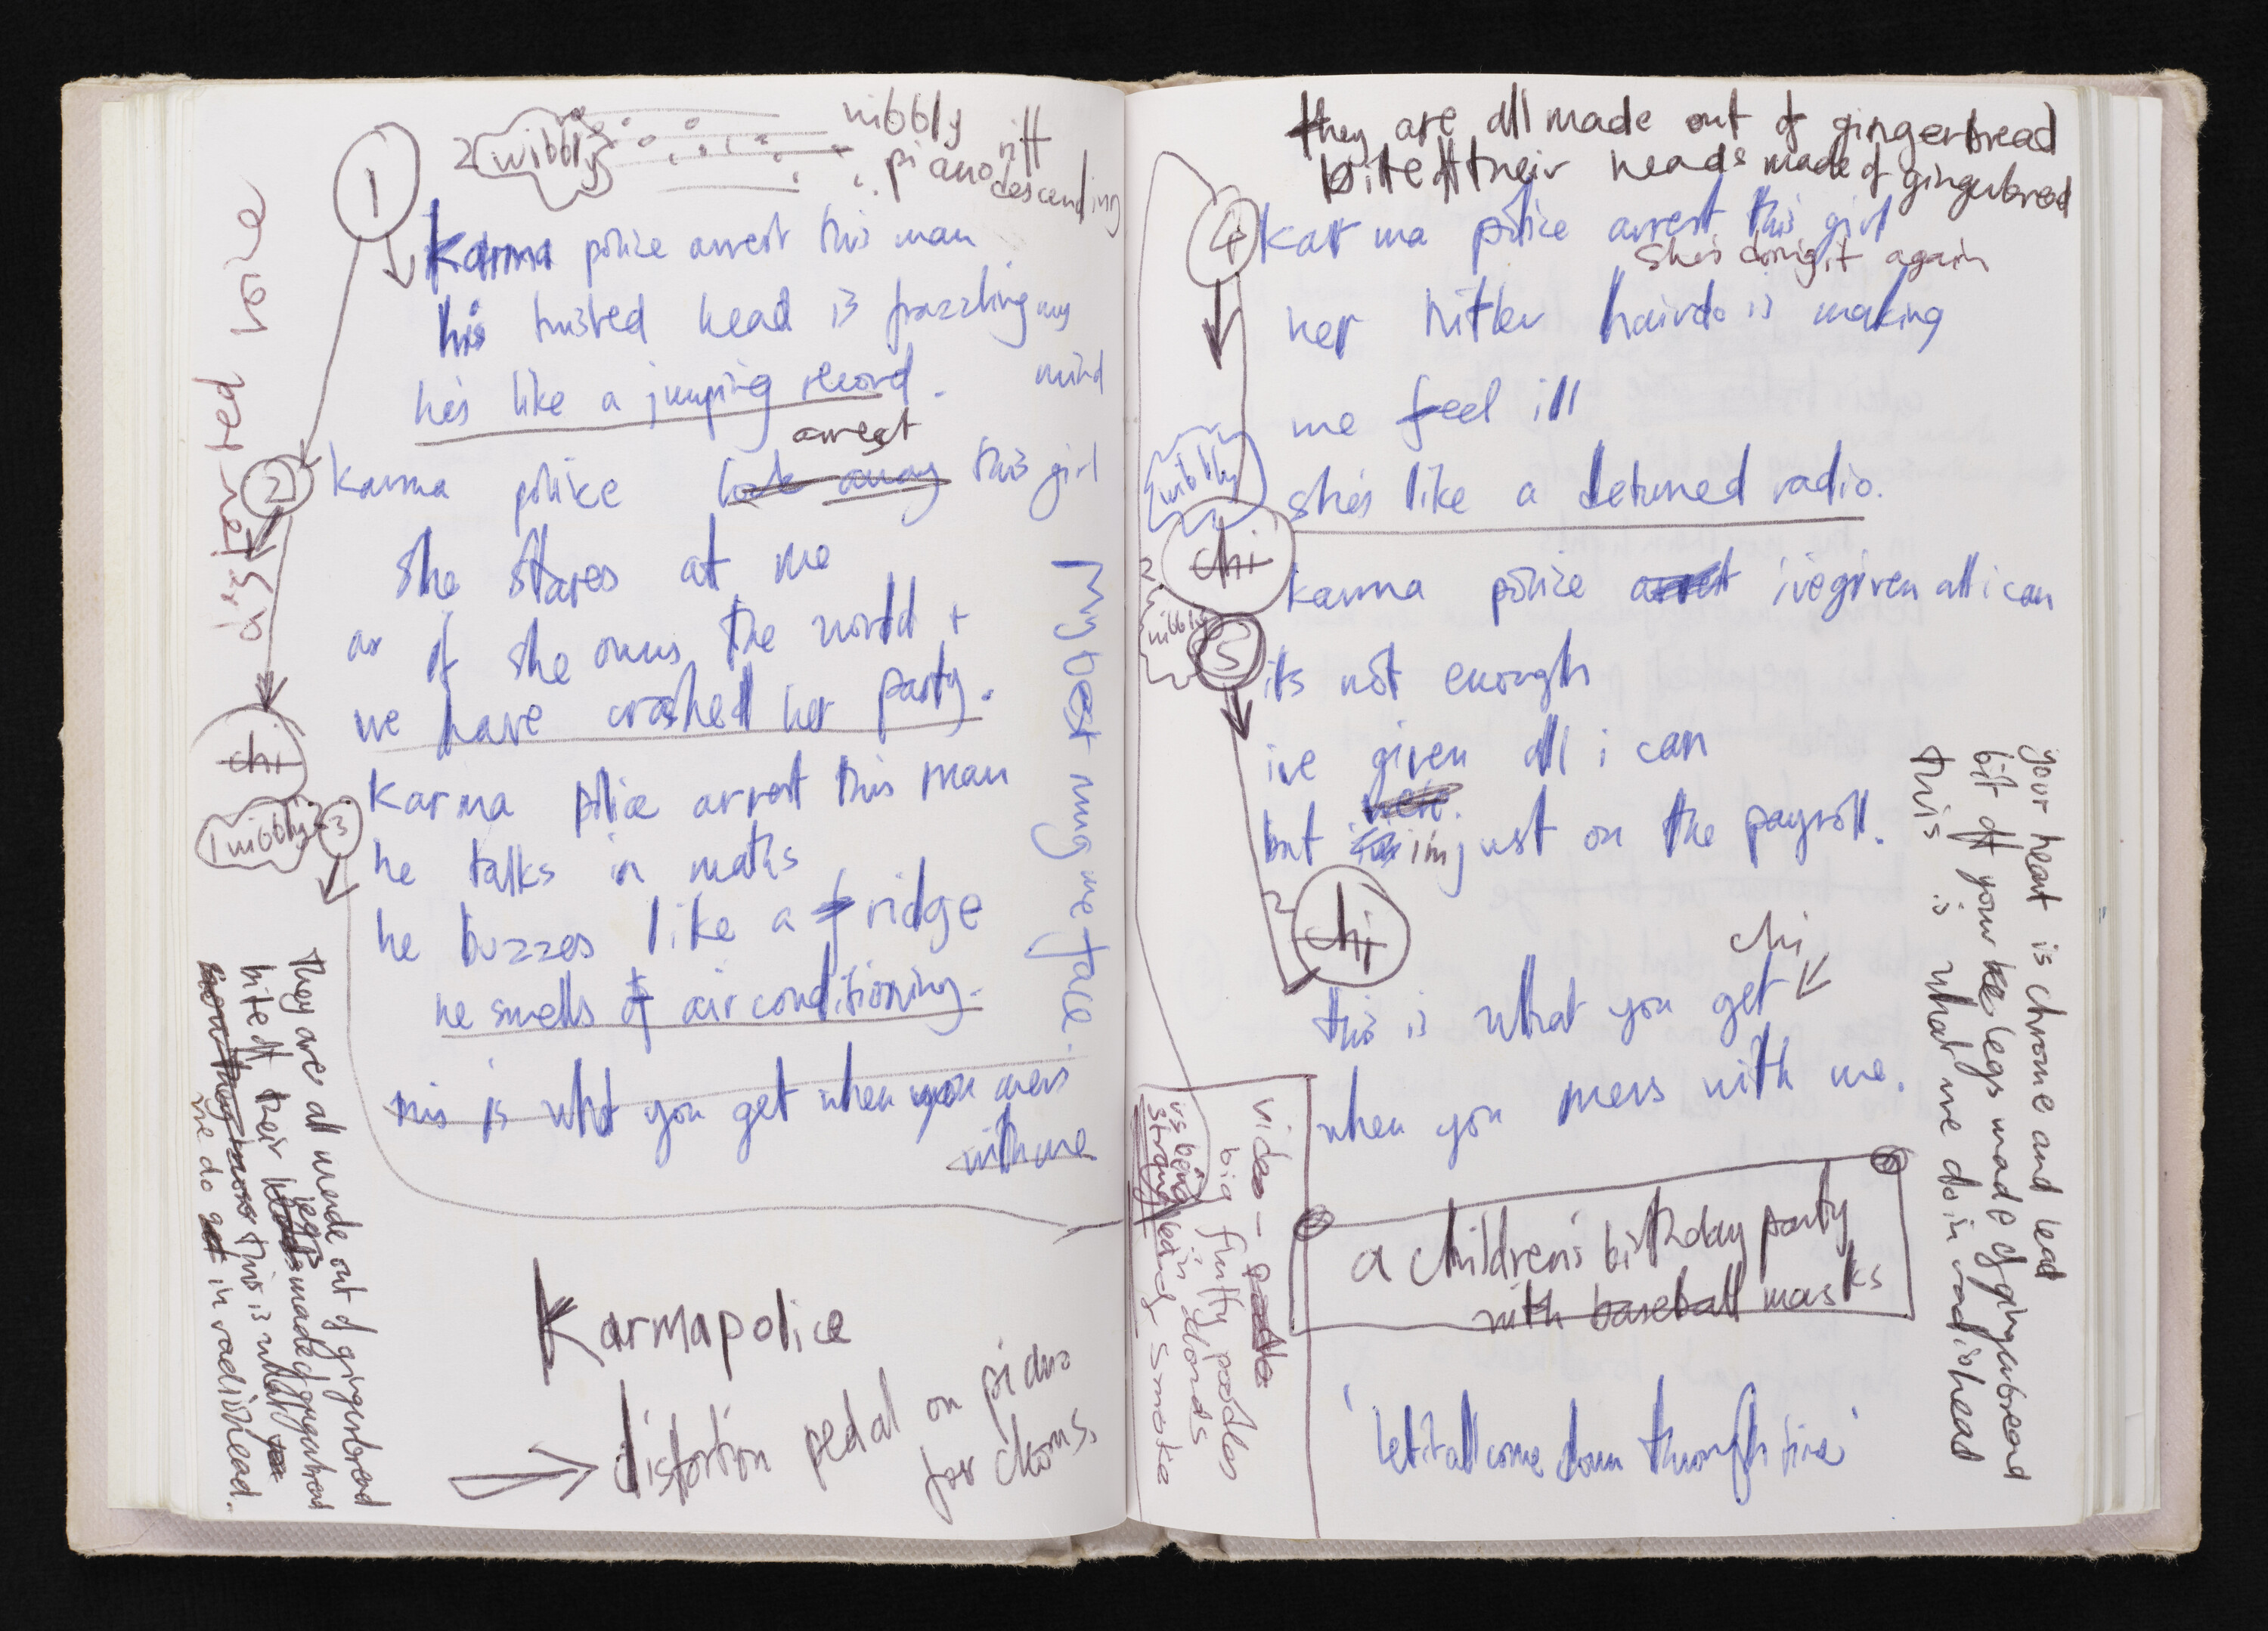 1
2 wibbly
nibbly
piano riff
descending
Karma police arrest this man
his twisted head is frazzling my
mind
he's like a jumping record.
arrest
2 karma police lock away this girl
she stares at me
as if she owns the world +
we have crashed her party.
chi
1 wibbly 3
Karma police arrest this man
he talks in maths
he buzzes like a fridge
he smells of air conditioning.
this is what you get when you mess
with me
Karmapolice
distortion pedal on piano
for chorus.
My best smug me face.
they are all made out of gingerbread
bite off their heads legs made of gingerbread
this is what
we do get in radiohead.
they are all made out of gingerbread
bite off their heads made of gingerbread
4 karma police arrest this girl
she's doing it again
her hitler hairdo is making
me feel ill
wibbly
she's like a detuned radio.
chi
karma police arrest ive given all i can
wibbly
5
its not enough
ive given all i can
but im just on the payroll.
chi
chi
this is what you get
when you mess with me.
video - poodle
big fluffy poodles
in clouds
us being
strangled by smoke
a children's birthday party
with baseball masks
'let it all come down through time'
your heart is chrome and lead
bit off your legs made of gingerbread
this is what we do in radiohead